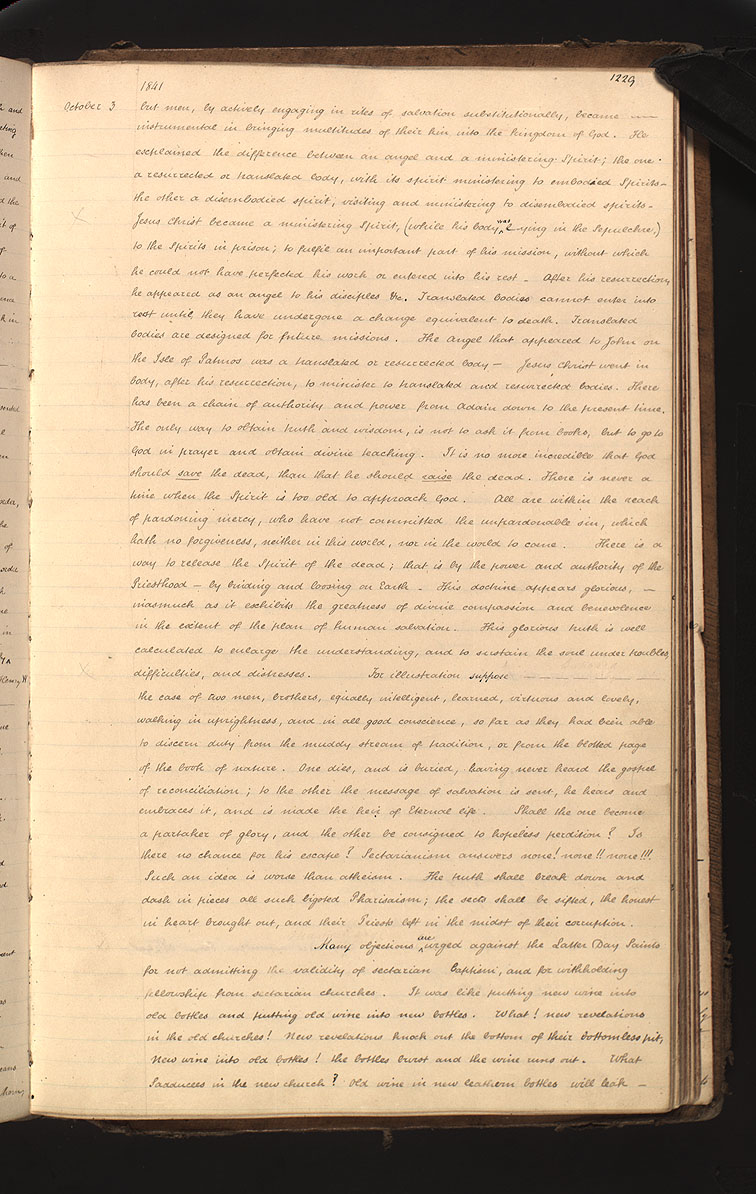 1841
1229
October 3
but men, by actively engaging in rites of salvation substitutionally, became —
instrumental in bringing multitudes of their kin into the kingdom of God. He
explained the difference between an angel and a ministering Spirit; the one
a resurrected or translated body, with its spirit ministering to embodied Spirits—
the other a disembodied spirit, visiting and ministering to disembodied spirits—
Jesus Christ became a ministering Spirit, (while his body was lying in the Sepulchre)
to the Spirits in prison; to fulfil an important part of his mission, without which
he could not have perfected his work or entered into his rest— After his resurrection,
he appeared as an angel to his disciples &c. Translated bodies cannot enter into
rest until they have undergone a change equivalent to death. Translated
bodies are designed for future missions. The Angel that appeared to John on
the Isle of Patmos was a translated or resurrected body— Jesus Christ went in
body, after his resurrection, to minister to translated and resurrected bodies. There
has been a chain of authority and power from Adam down to the present time.
The only way to obtain truth and wisdom, is not to ask it from books, but to go to
God in prayer and obtain divine teaching. It is no more incredible that God
should save the dead, than that he should raise the dead. There is never a
time when the Spirit is too old to approach God. All are within the reach
of pardoning mercy, who have not committed the unpardonable sin, which
hath no forgiveness, neither in this world, nor in the world to come. There is a
way to release the Spirit of the dead; that is by the power and authority of the
Priesthood— by binding and loosing on Earth— This doctrine appears glorious, —
inasmuch as it exhibits the greatness of divine compassion and benevolence
in the extent of the plan of human salvation. This glorious truth is well
calculated to enlarge the understanding, and to sustain the soul under troubles,
difficulties, and distresses. For illustration suppose
the case of two men, brothers, equally intelligent, learned, virtuous and lovely,
walking in uprightness, and in all good conscience, so far as they had been able
to discern duty from the muddy stream of tradition, or from the blotted page
of the book of nature. One dies, and is buried, having never heard the gospel
of reconciliation; to the other the message of salvation is sent, he hears and
embraces it, and is made the heir of Eternal life. Shall the one become
a partaker of glory, and the other be consigned to hopeless perdition? Is
there no chance for his escape? Sectarianism answers none! none!! none!!!
Such an idea is worse than atheism. The truth shall break down and
dash in pieces all such bigoted Pharisaism; the sects shall be sifted, the honest
in heart brought out, and their Priests left in the midst of their corruption.
Many objections are urged against the Latter Day Saints
for not admitting the validity of sectarian Baptism, and for withholding
fellowship from sectarian churches. It was like putting new wine into
old bottles and putting old wine into new bottles. What! new revelations
in the old churches! New revelations knock out the bottom of their bottomless pit,
New wine into old bottles! the bottles burst and the wine runs out. What
Sadducees in the new church? Old wine in new leathern bottles will leak —